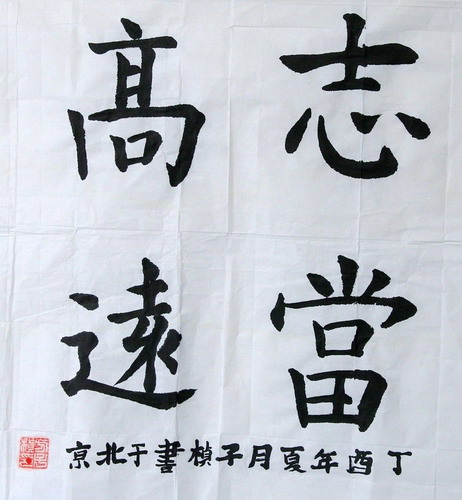 志當
髙遠
丁酉年夏月子楨書于北京